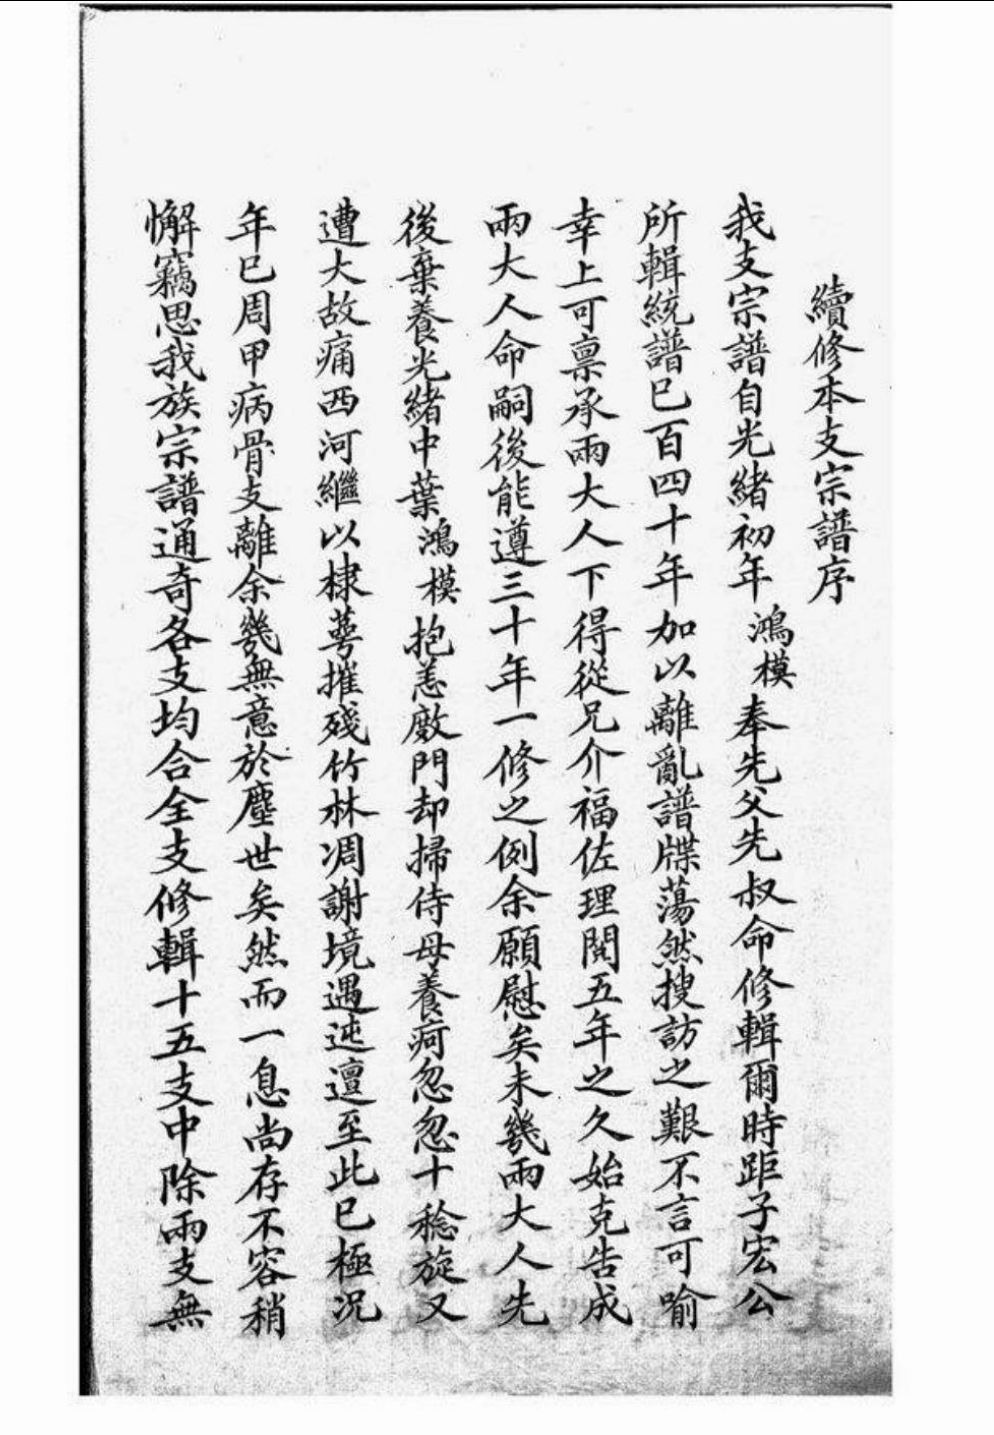 續修本支宗譜序
我支宗譜自光緒初年鴻模奉先父先叔命修輯爾時距子宏公
所輯統譜已百四十年加以離亂譜牒蕩然搜訪之艱不言可喻
幸上可禀承兩大人下得從兄介福佐理閱五年之久始克告成
兩大人命嗣後能遵三十年一修之例余願慰矣未幾兩大人先
後棄養光緒中葉鴻模抱恙廠門却掃侍母養疴忽忽十稔旋又
遭大故痛西河繼以棣萼摧殘竹林凋謝境遇迍邅至此已極况
年已周甲病骨支離余幾無意於塵世矣然而一息尚存不容稍
懈竊思我族宗譜通奇各支均合全支修輯十五支中除兩支無